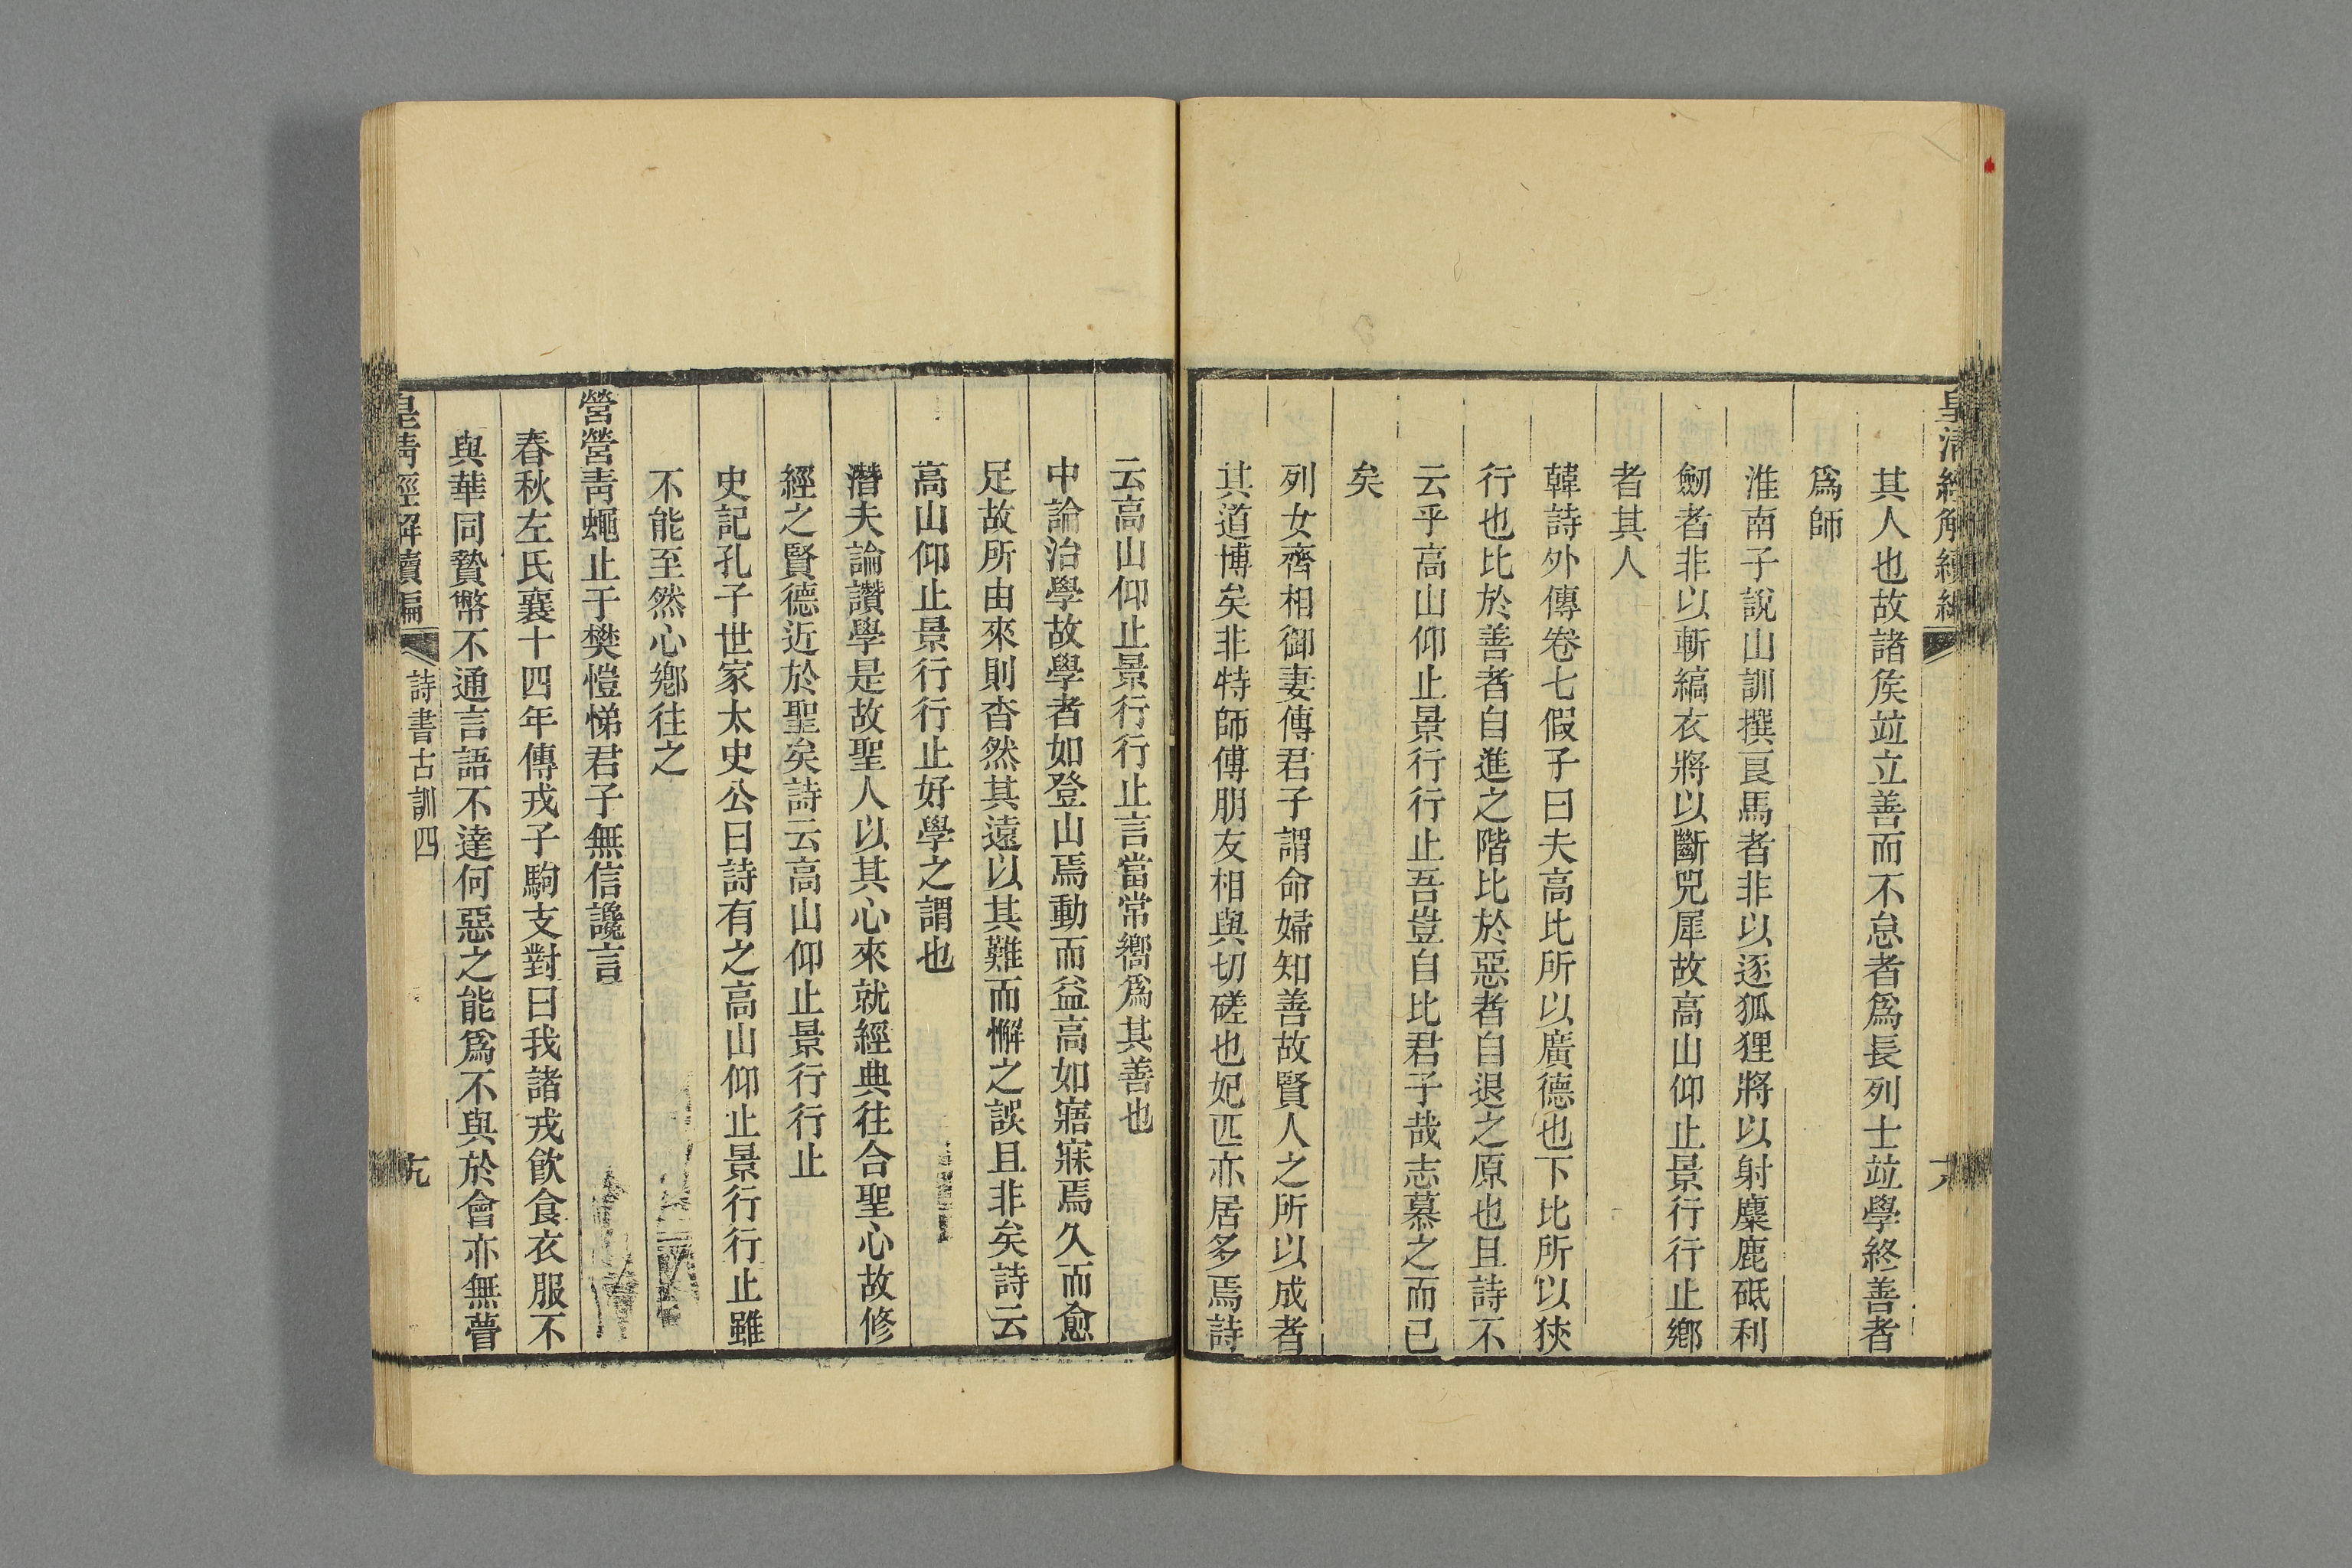 皇清經解續編
其人也故諸矦竝立善而不怠者爲長列士竝學終善者
爲師
淮南子說山訓撰良馬者非以逐狐狸將以射麋鹿砥利
劒者非以斬縞衣將以斷兕犀故高山仰止景行行止鄉
者其人
韓詩外傳卷七假子曰夫高比所以廣德也下比所以狹
行也比於善者自進之階比於惡者自退之原也且詩不
云乎高山仰止景行行止吾豈自比君子哉志慕之而已
矣
列女齊相御妻傳君子謂命婦知善故賢人之所以成者
其道博矣非特師傅朋友相與切磋也妃匹亦居多焉詩
云高山仰止景行行止言當常嚮爲其善也
中論治學故學者如登山焉動而益高如寤寐焉久而愈
足故所由來則杳然其遠以其難而懈之誤且非矣詩云
高山仰止景行行止好學之謂也
潛夫論讚學是故聖人以其心來就經典往合聖心故修
經之賢德近於聖矣詩云高山仰止景行行止
史記孔子世家太史公曰詩有之高山仰止景行行止雖
不能至然心鄉往之
營營靑蠅止于樊愷悌君子無信讒言
春秋左氏襄十四年傳戎子駒支對曰我諸戎飮食衣服不
與華同贄幣不通言語不達何惡之能爲不與於會亦無瞢
皇淸經解續編 詩書古訓四